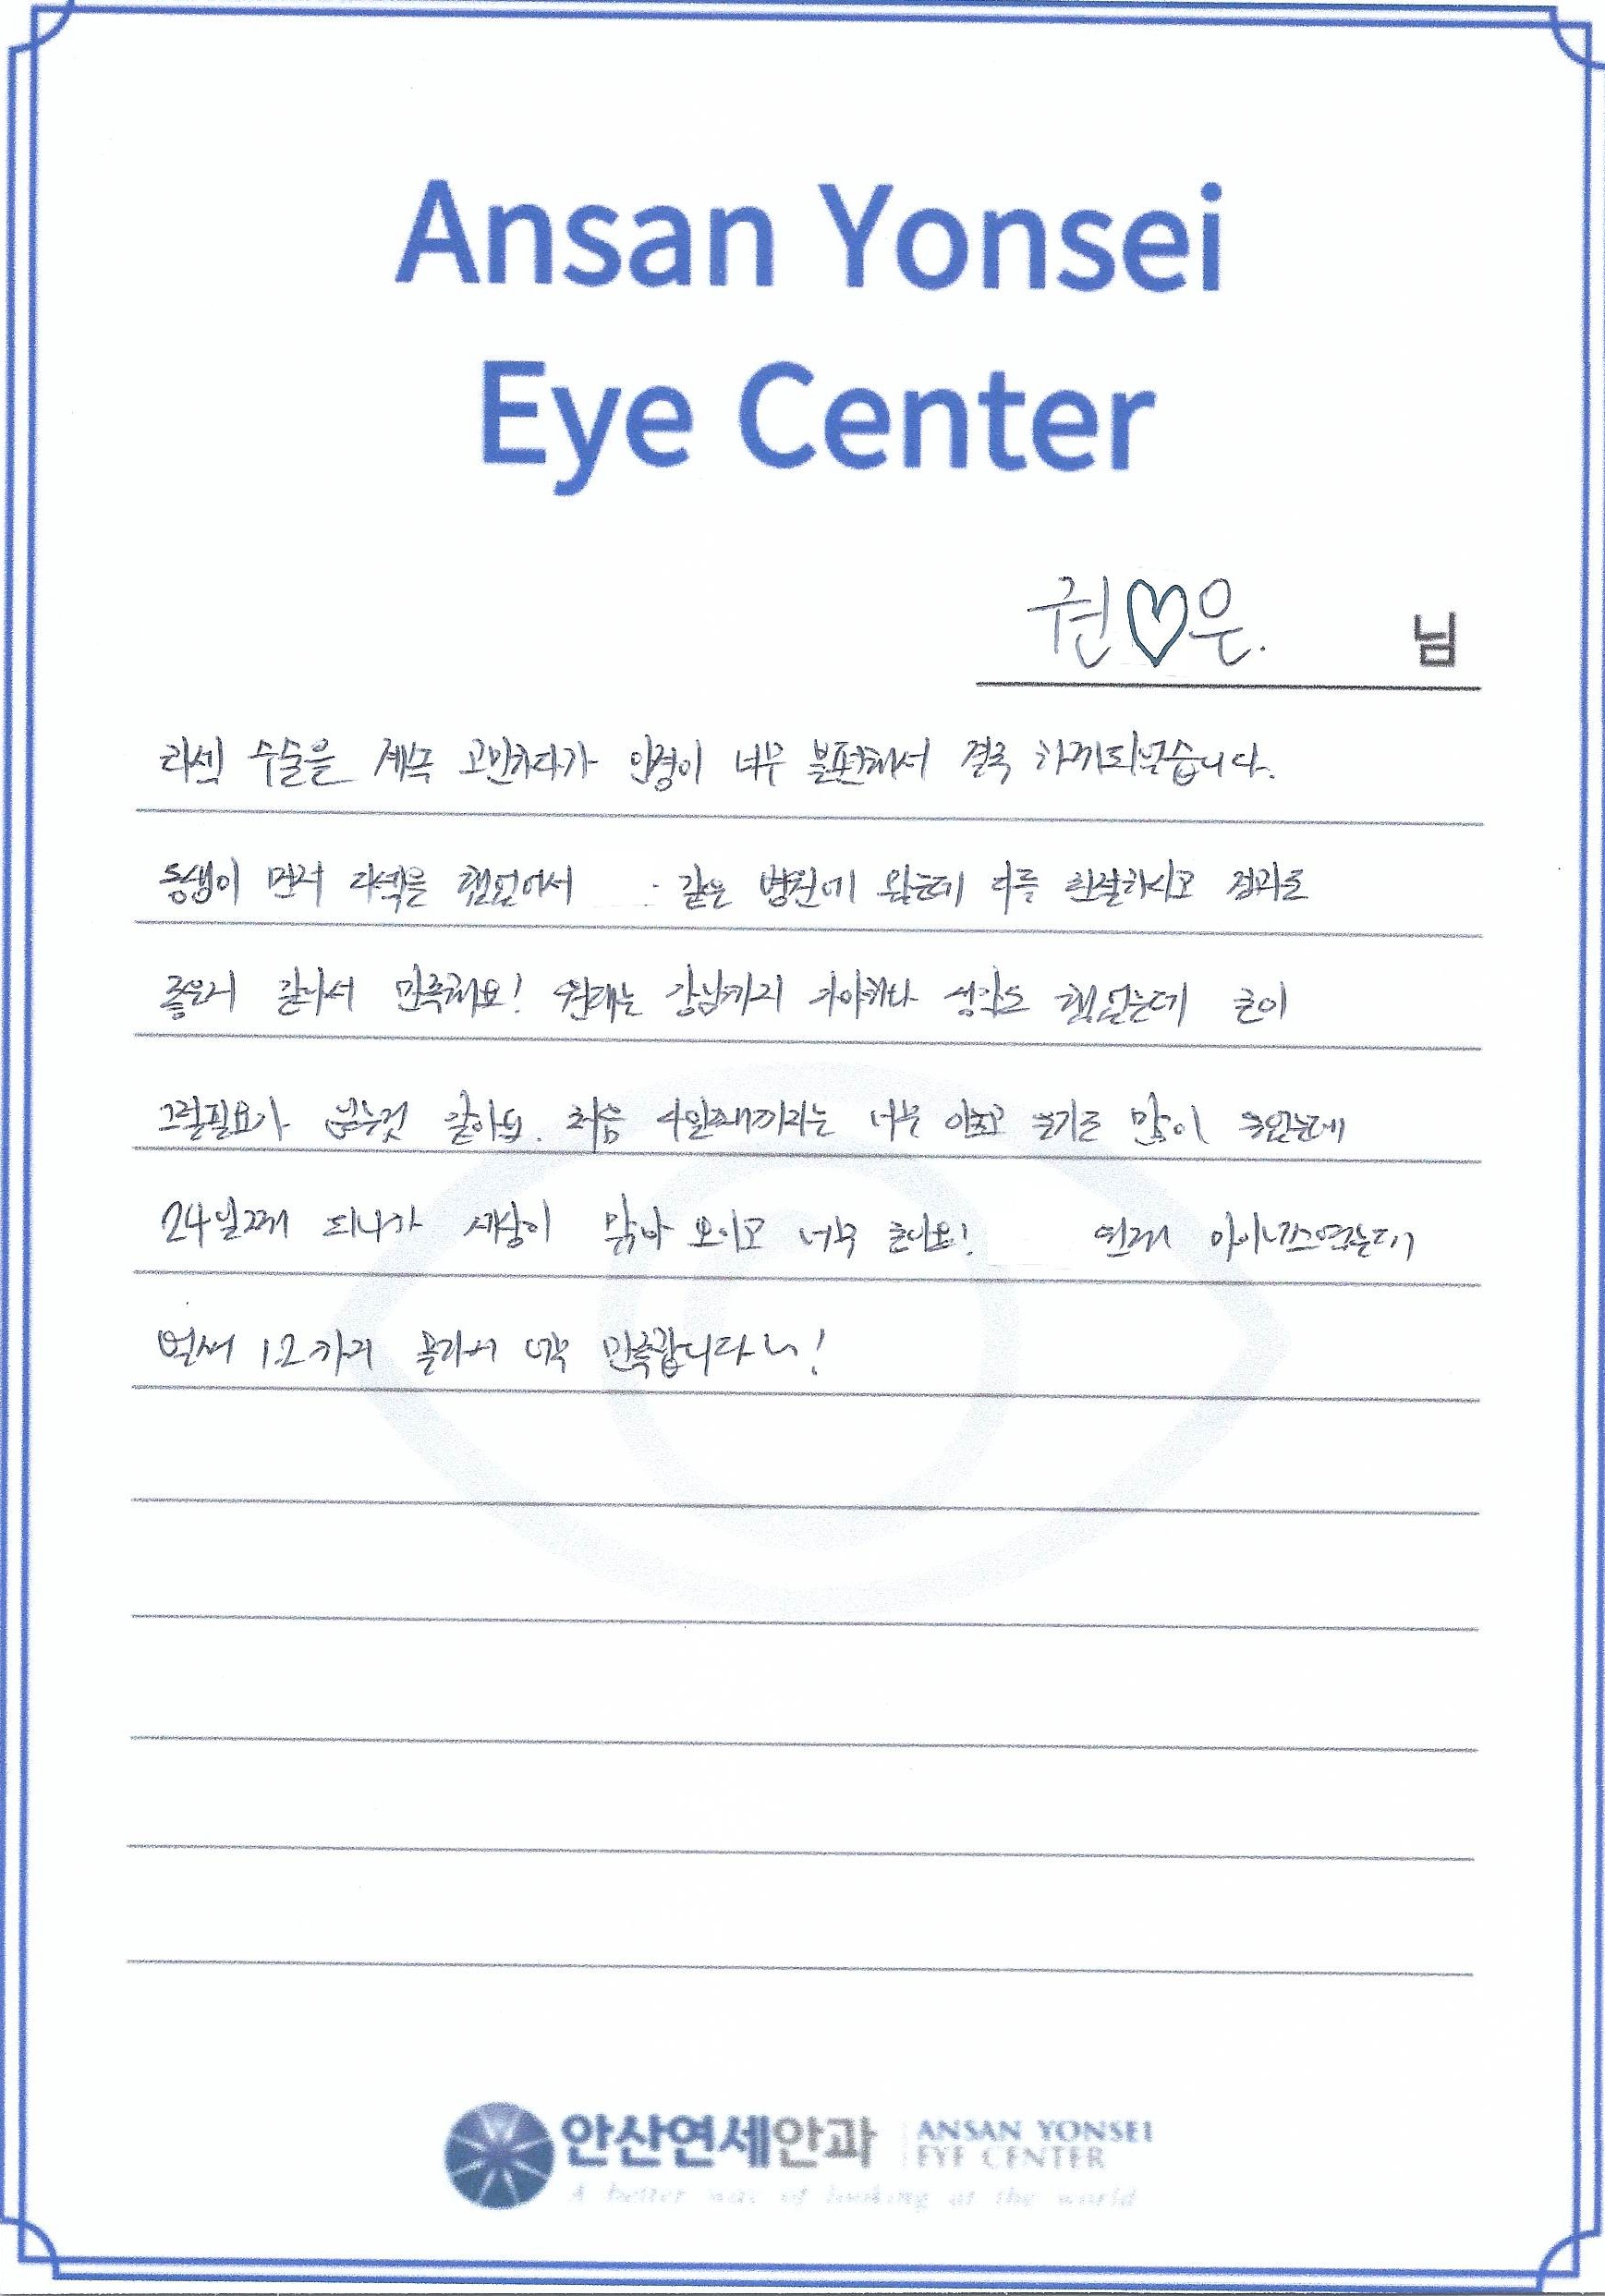 Ansan Yonsei
Eye Center
권♡은. 님
라섹 수술을 계속 고민하다가 안경이 너무 불편해서 결국 하게되었습니다.
동생이 먼저 라섹을 했었어서 같은 병원에 왔는데 다들 친절하시고 결과도
좋은거 같아서 만족해요! 원래는 강남까지 가야하나 생각도 했었는데 굳이
그럴필요가 없는것 같아요. 처음 4일째까지는 너무 아프고 눈기도 많이 했는데
24일째 되니까 세상이 맑아 보이고 너무 좋아요! 원래 마이너스였는데
벌써 1.2까지 올라서 너무 만족합니다ㅎㅎ!
안산연세안과 ANSAN YONSEI
EYE CENTER
A better way of looking at the world